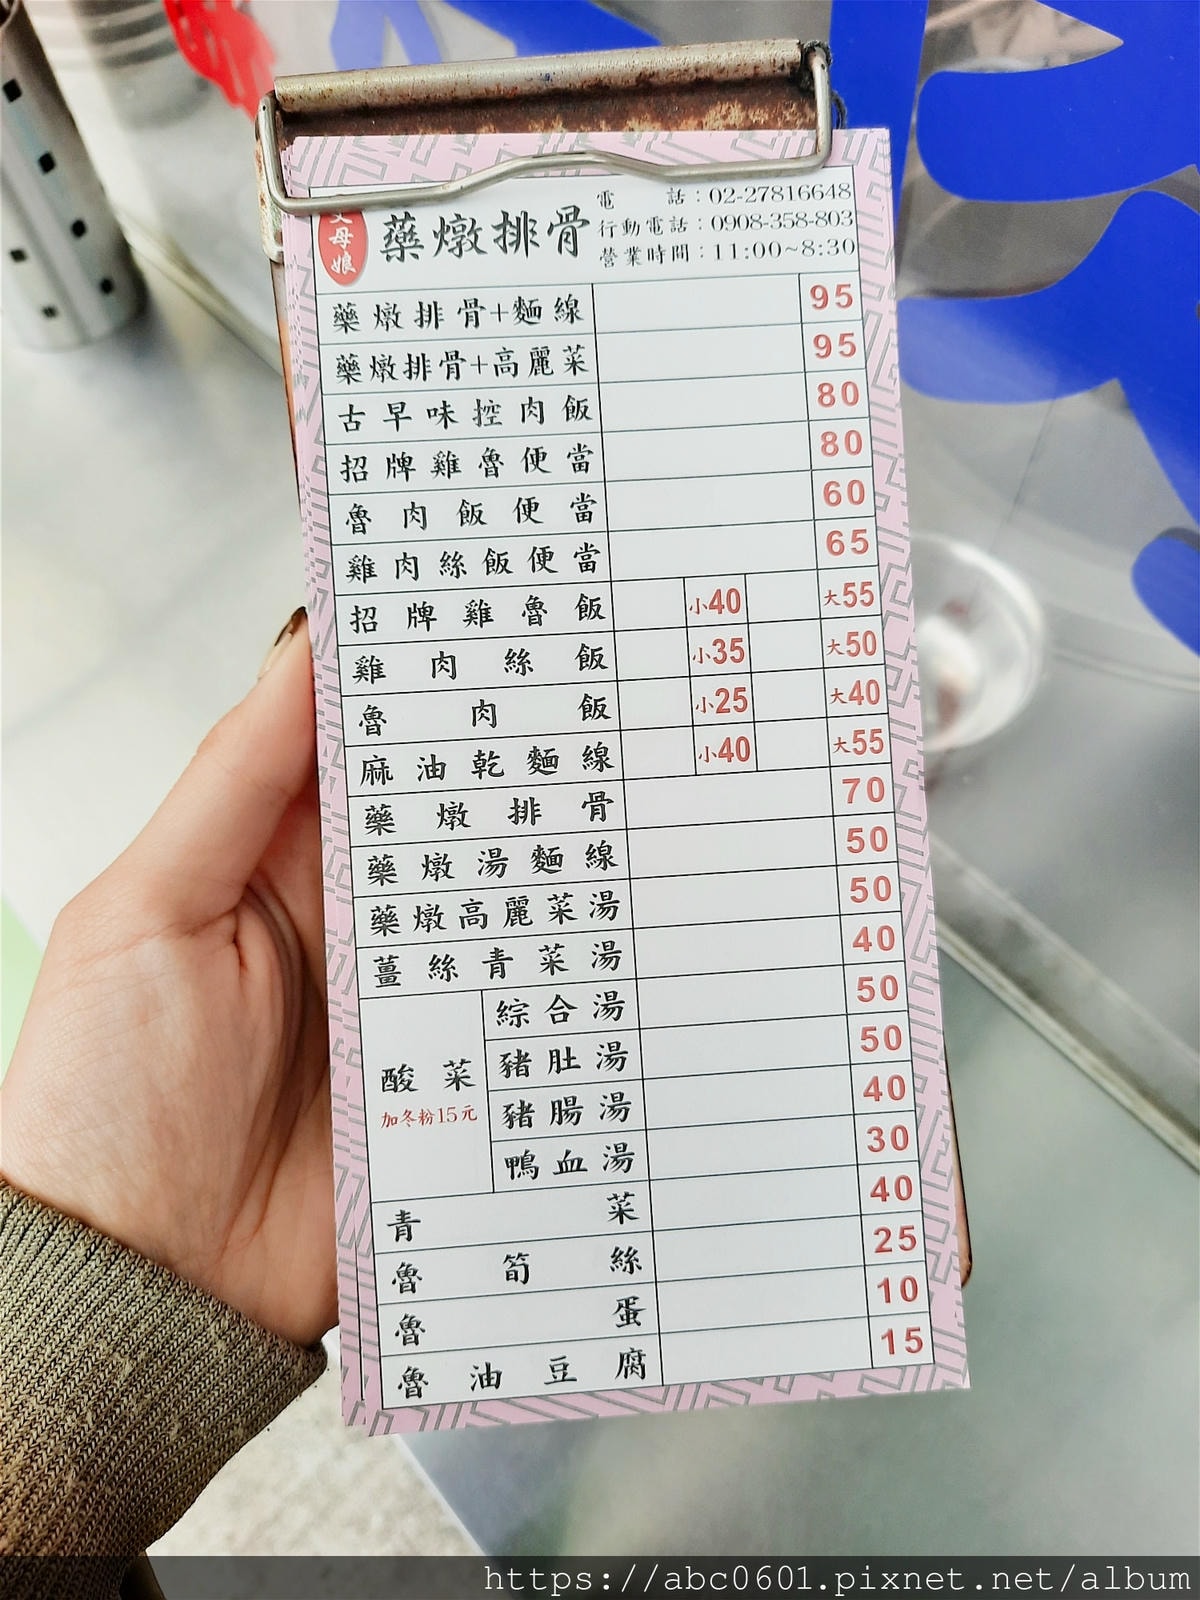 父母娘
藥燉排骨
電話：02-27816648
行動電話：0908-358-803
營業時間：11:00~8:30
藥燉排骨+麵線 95
藥燉排骨+高麗菜 95
古早味控肉飯 80
招牌雞魯便當 80
魯肉飯便當 60
雞肉絲飯便當 65
招牌雞魯飯 小40 大55
雞肉絲飯 小35 大50
魯肉飯 小25 大40
麻油乾麵線 小40 大55
藥燉排骨 70
藥燉湯麵線 50
藥燉高麗菜湯 50
薑絲青菜湯 40
酸菜
加冬粉15元
綜合湯 50
豬肚湯 50
豬腸湯 40
鴨血湯 30
青菜 40
魯筍絲 25
魯蛋 10
魯油豆腐 15
https://abc0601.pixnet.net/album